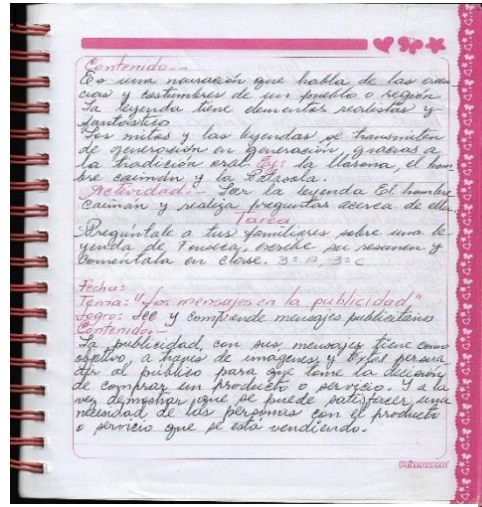 Contenido.-
Es una narración que habla de las creen-
cias y costumbres de un pueblo o región
La leyenda tiene elementos realistas y
fantásticos
Los mitos y las leyendas se transmiten
de generación en generación, gracias a
la tradición oral Ej: la llorona, el hom-
bre caimán y la Patasola.
Actividad.- Leer la leyenda El hombre
caimán y realiza preguntas acerca de ella
Tarea
Pregúntale a tus familiares sobre una le-
yenda de Fonseca, escribe su resumen y
Coméntala en clase. 3º A, 3º C
Fecha:
Tema: "Los mensajes en la publicidad"
Logro: Lee y comprende mensajes publicitarios
Contenido.-
La publicidad, con sus mensajes tiene como
objetivo, a través de imágenes y textos persua-
dir al público para que tome la decisión
de comprar un producto o servicio. Y a la
vez demostrar que se puede satisfacer una
necesidad de las personas con el producto
o servicio que se está vendiendo.
Primavera